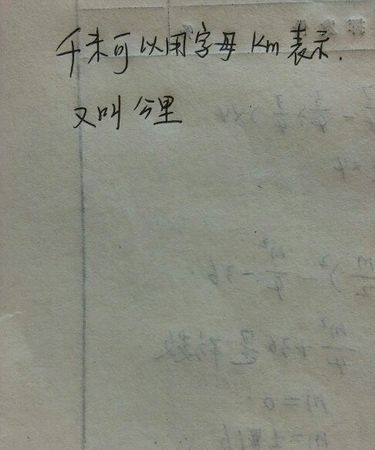 千米可以用字母 Km 表示.
又叫 公里